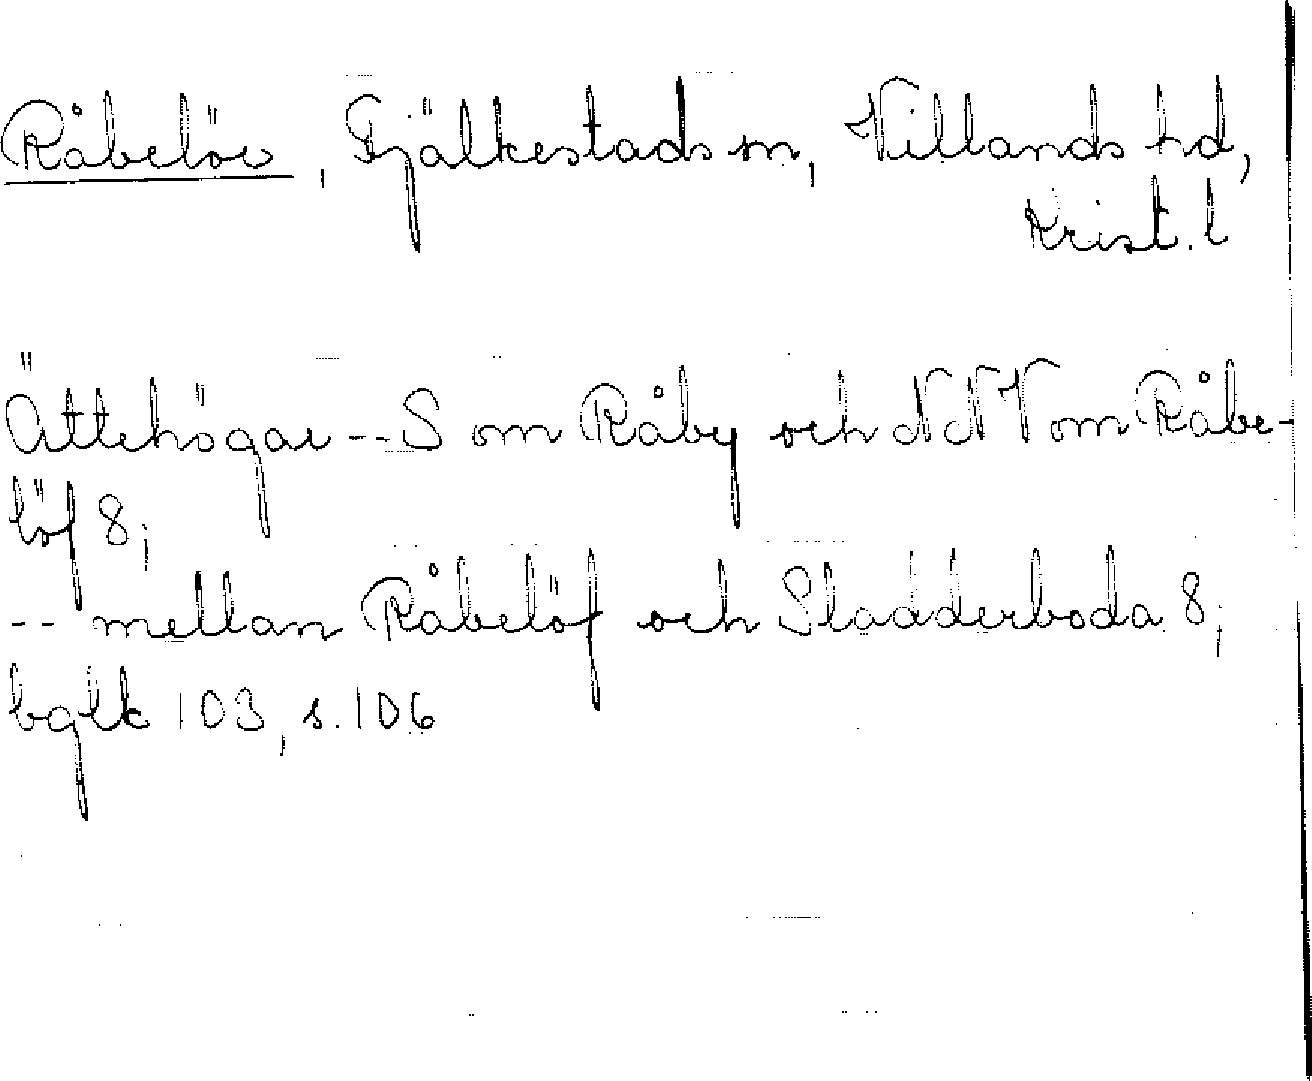 Råbelöv, Fjälkestads sn, Villands hd,
Krist. l
Ättehögar -- S om Råby och NNV om Råbe-
löf 8;
-- mellan Råbelöf och Sladderboda 8;
bglk 103, s. 106